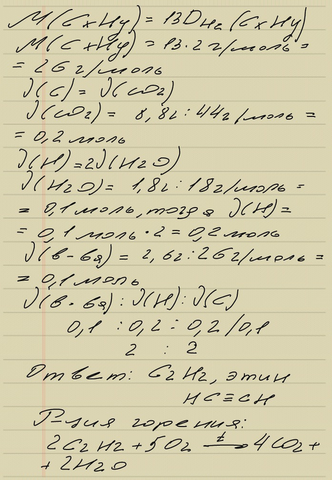 M(CxHy) = 13DH2(CxHy)
M(CxHy) = 13·2 г/моль =
= 26 г/моль
ν(C) = ν(CO2)
ν(CO2) = 8,8г : 44г/моль =
= 0,2 моль
ν(H) = 2ν(H2O)
ν(H2O) = 1,8г : 18г/моль =
= 0,1 моль, тогда ν(H) =
= 0,1 моль · 2 = 0,2 моль
ν(в-ва) = 2,6г : 26г/моль =
= 0,1 моль
ν(в-ва) : ν(H) : ν(C)
0,1 : 0,2 : 0,2 /0,1
2 : 2
Ответ: C2H2, этин
HC≡CH
Р-ция горения:
2C2H2 + 5O2 t→ 4CO2 +
+ 2H2O